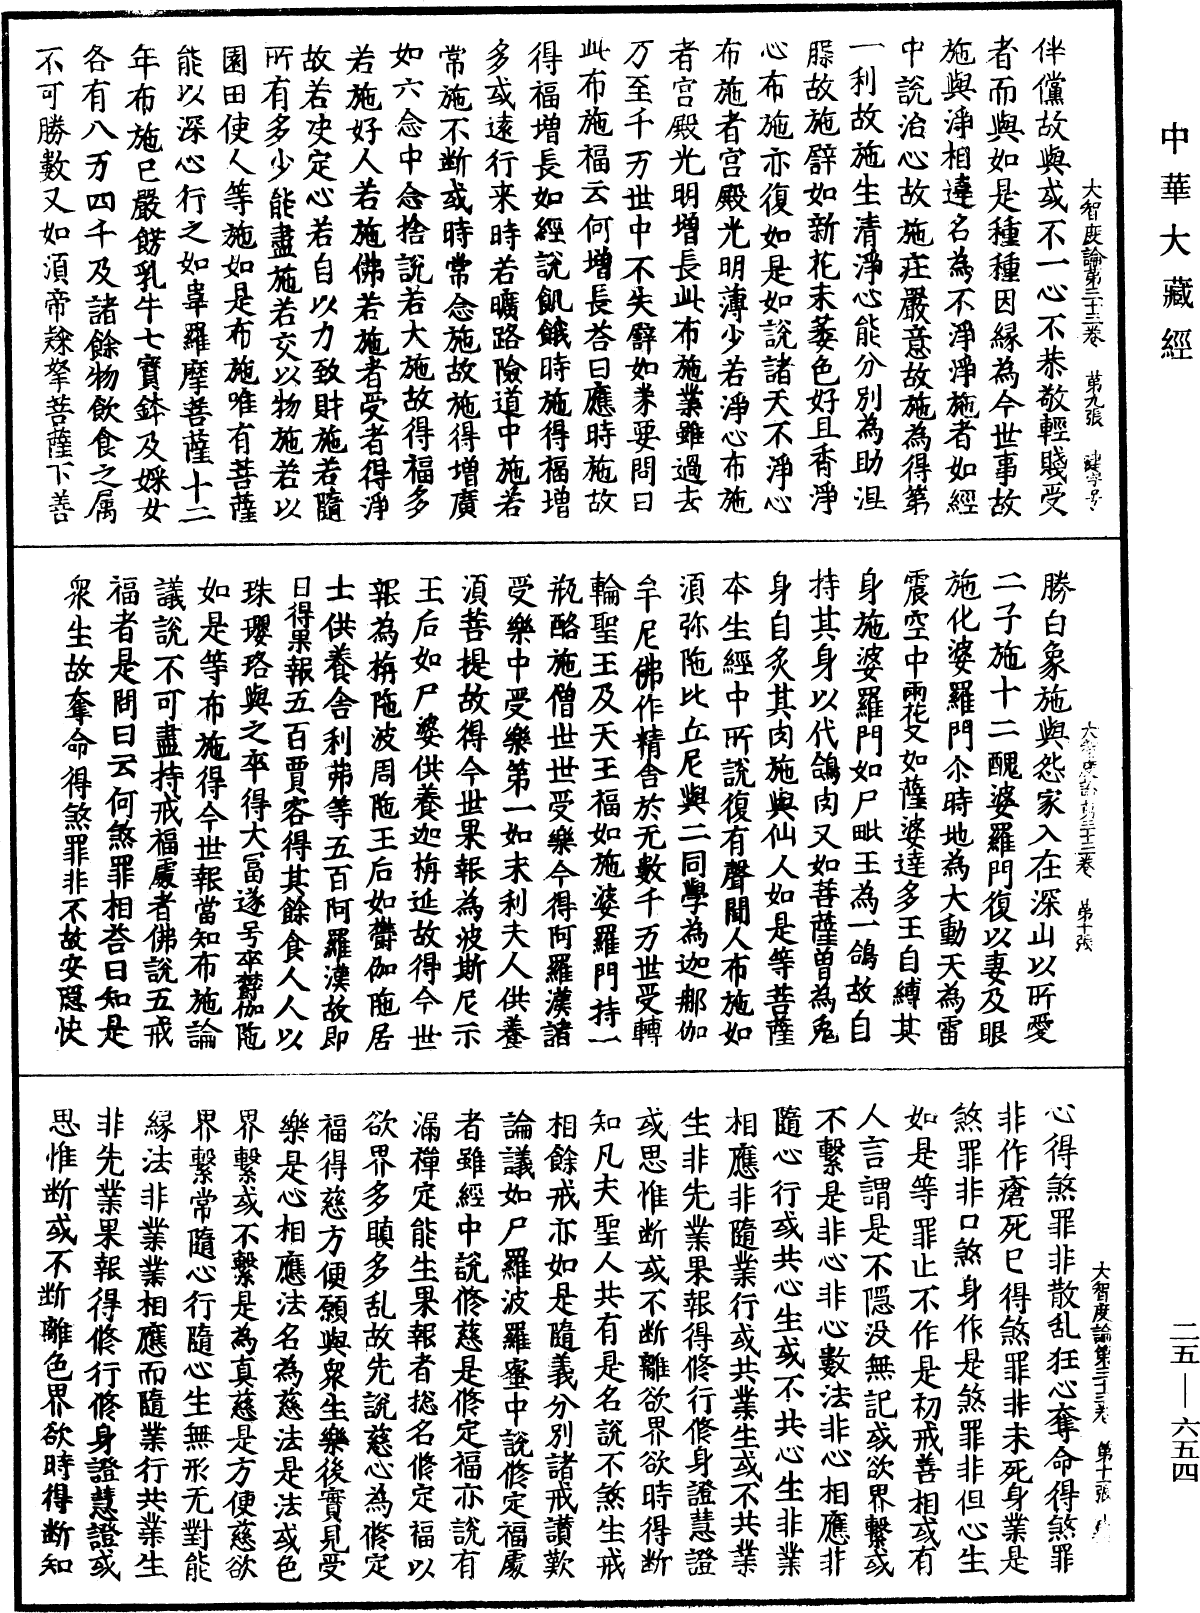 中華大藏經
大智度論第三十三卷　第九張
伴儻故與或不一心不恭敬輕賤受
者而與如是種種因緣為今世事故
施與淨相違名為不淨淨施者如經
中說治心故施莊嚴意故施為得第
一利故施生清淨心能分別為助涅
縣故施譬如新花未萎色好且香淨
心布施亦復如是如說諸天不淨心
布施者宮殿光明薄少若淨心布施
者宮殿光明增長此布施業雖過去
万至千万世中不失譬如券要問曰
此布施福云何增長荅曰應時施故
得福增長如經說飢餓時施得福增
多或遠行来時若曠路險道中施若
常施不斷或時常念施故施得增廣
如六念中念捨說若大施故得福多
若施好人若施佛若施者受者得淨
故若决定心若自以力致財施若隨
所有多少能盡施若交以物施若以
園田使人等施如是布施唯有菩薩
能以深心行之如韋羅摩菩薩十二
年布施已嚴餝乳牛七寶鉢及婇女
各有八万四千及諸餘物飲食之属
不可勝數又如湏帝㝹拏菩薩下善
大智度論第三十三卷　第十張
勝白象施與怨家入在深山以所愛
二子施十二醜婆羅門復以妻及眼
施化婆羅門尒時地為大動天為雷
震空中雨花又如薩婆達多王自縛其
身施婆羅門如尸毗王為一鴿故自
持其身以代鴿肉又如菩薩曾為兔
身自炙其肉施與仙人如是等菩薩
本生經中所說復有聲聞人布施如
湏弥陁比丘尼與二同學為迦郍伽
牟尼佛作精舍於无數千万世受轉
輪聖王及天王福如施婆羅門持一
瓶酪施僧世世受樂今得阿羅漢諸
受樂中受樂第一如末利夫人供養
湏菩提故得今世果報為波斯尼示
王后如尸婆供養迦栴延故得今世
報為栴陁波周陁王后如欝伽陁居
士供養舍利弗等五百阿羅漢故即
日得果報五百賈客得其餘食人人以
珠瓔珞與之卒得大冨遂号卒欝伽陁
如是等布施得今世報當知布施論
議說不可盡持戒福處者佛說五戒
福者是問曰云何煞罪相荅曰知是
衆生故奪命得煞罪非不故安隠快
大智度論第三十三卷　第十一張
心得煞罪非散乱狂心奪命得煞罪
非作瘡死已得煞罪非未死身業是
煞罪非口煞身作是煞罪非但心生
如是等罪止不作是初戒善相或有
人言謂是不隠没無記或欲界繫或
不繫是非心非心數法非心相應非
隨心行或共心生或不共心生非業
相應非隨業行或共業生或不共業
生非先業果報得修行修身證慧證
或思惟斷或不斷離欲界欲時得斷
知凡夫聖人共有是名說不煞生戒
相餘戒亦如是隨義分別諸戒讃歎
論議如尸羅波羅蜜中說修定福處
者雖經中說修慈是修定福亦說有
漏禪定能生果報者捴名修定福以
欲界多瞋多乱故先說慈心為修定
福得慈方便願與衆生樂後實見受
樂是心相應法名為慈法是法或色
界繫或不繫是為真慈是方便慈欲
界繫常隨心行隨心生無形无對能
緣法非業業相應而隨業行共業生
非先業果報得修行修身證慧證或
思惟斷或不斷離色界欲時得斷知
二五—六五四